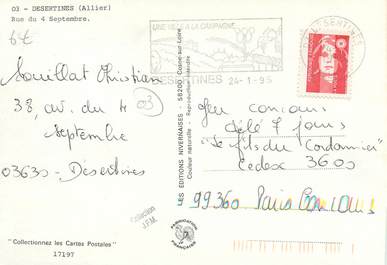 03 - DESERTINES (Allier)
Rue du 4 Septembre.
6€
Mouillat Christian
38, av. du 4
03
Septembre
03630 - Désertines
"Collectionnez les Cartes Postales"
17197
LES EDITIONS NIVERNAISES - 58200 Cosne-sur-Loire
Couleur naturelle - Reproduction interdite
Collection
J.F.M.
FABRICATION
FRANÇAISE
UNE VILLE A LA CAMPAGNE
DESERTINES 24-1-95
DESERTINES
Jeu concours
Télé 7 jours
"Le fils du Cordonnier"
Cedex 3600
99360 Paris Concours